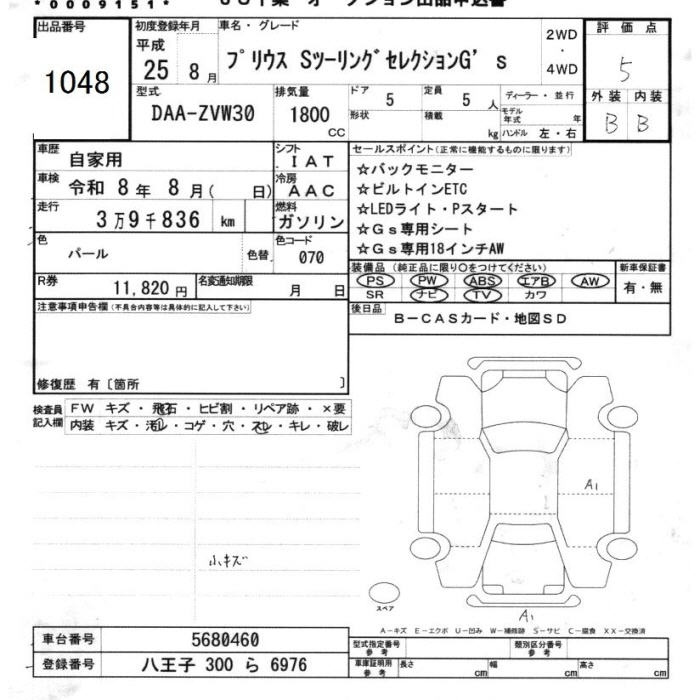 *0009151*
出品番号
1048
初度登録年月
平成
25 8月
車名・グレード
プリウス SツーリングセレクションG's
2WD
・
4WD
評価点
5
外装 内装
B B
型式
DAA-ZVW30
排気量
1800
CC
ドア
5
形状
定員
5 人
積載
kg
ディーラー・並行
モデル年式 年
ハンドル 左・右
車歴
自家用
シフト
IAT
車検
令和 8年 8月( 日)
冷房
AAC
走行
3万9千836 km
燃料
ガソリン
色
パール
色替
色コード
070
R券
11,820円
名変通知期限
月 日
セールスポイント(正常に機能するものに限ります)
☆バックモニター
☆ビルトインETC
☆LEDライト・Pスタート
☆Gs専用シート
☆Gs専用18インチAW
装備品(純正品に限り○をつけてください)
PS PW ABS エアB AW
SR ナビ TV カワ
新車保証書
有・無
後日品
B-CASカード・地図SD
注意事項申告欄(不具合内容等は具体的に記入して下さい)
修復歴 有〔箇所 〕
検査員記入欄
FW キズ・飛石・ヒビ割・リペア跡・×要
内装 キズ・汚れ・コゲ・穴・スレ・キレ・破レ
小キズ
A1
スペア
A1
A-キズ E-エクボ U-凹み W-補修跡 S-サビ C-腐食 XX-交換済
車台番号
5680460
登録番号
八王子 300 ら 6976
型式指定番号
参考
類別区分番号
参考
車庫証明用
参考
長さ cm
幅 cm
高さ cm